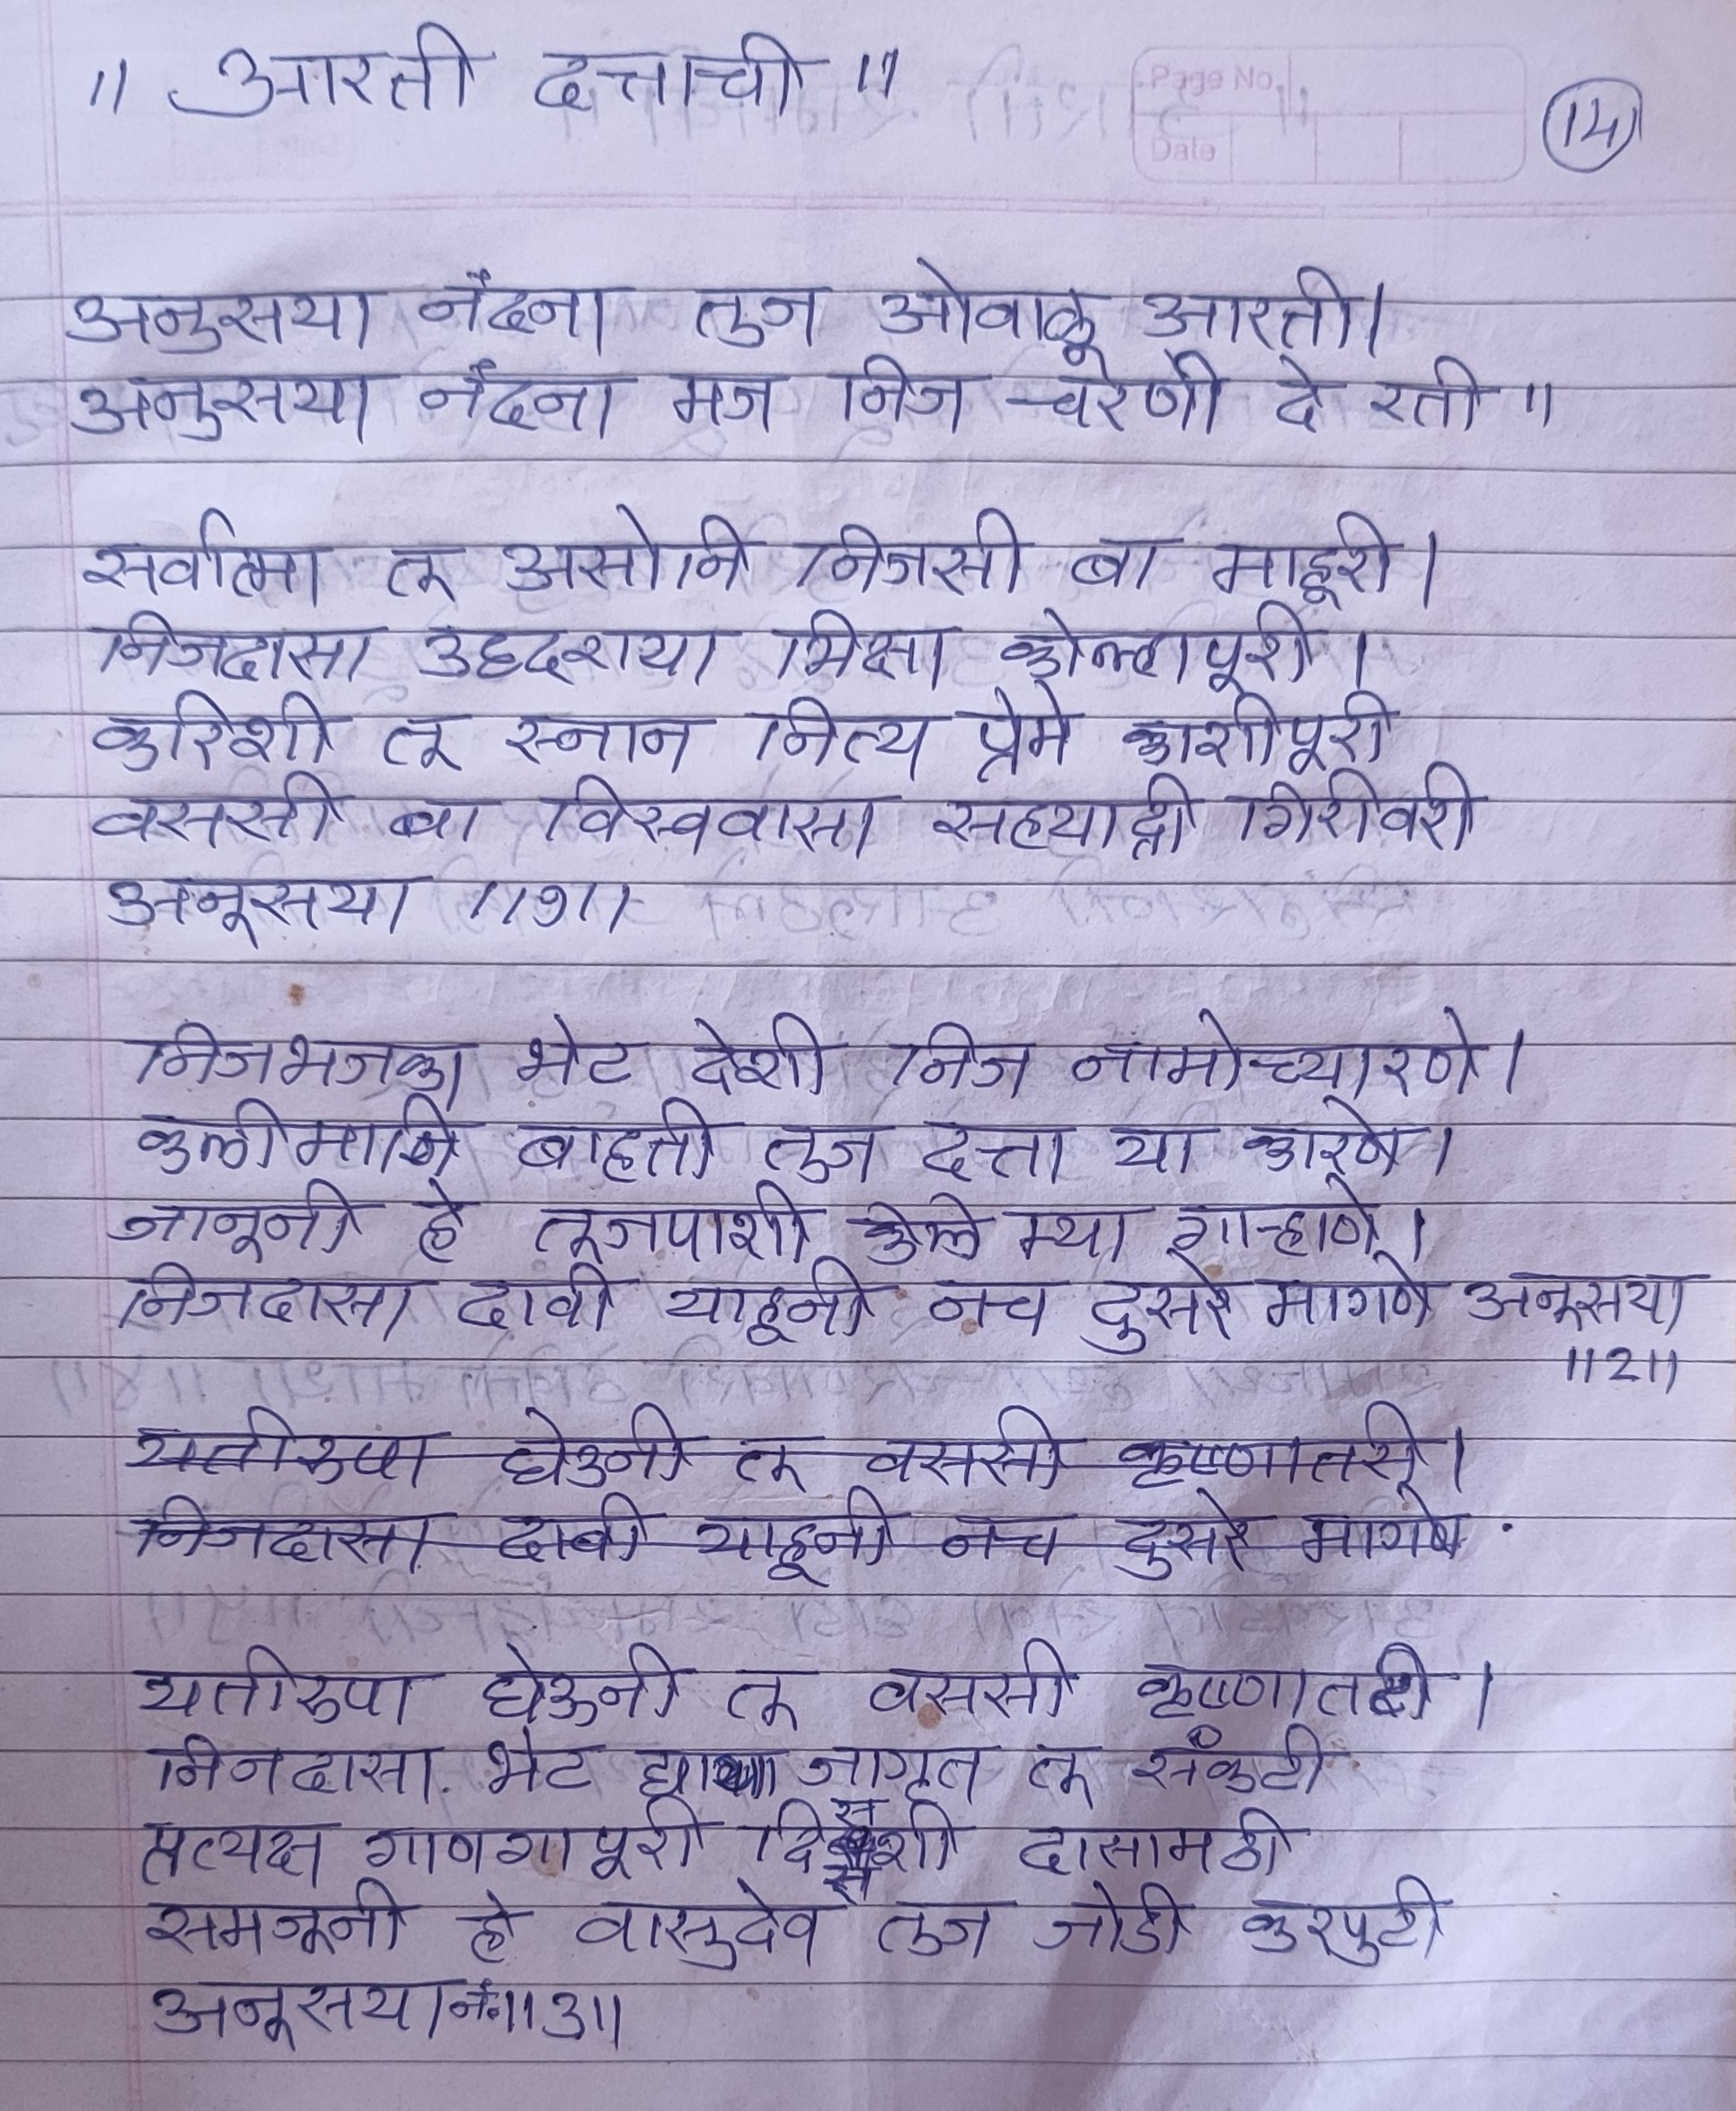 ॥ आरती दत्ताची ॥
Page No.
Date
14
अनुसया नंदना तुज ओवाळू आरती।
अनुसया नंदना मज निज चरणी दे रती ॥
सर्वात्मा तू असोनि निजसी बा माहूरी।
निजदासा उद्दराया भिक्षा कोल्हापूरी।
करिशी तू स्नान नित्य प्रेमे काशीपूरी
वससी बा विस्ववासा सह्याद्री गिरीवरी
अनूसया ॥१॥
निजभजका भेट देशी निज नामोच्यारणे।
कलीमाजि बाहती तुज दत्ता या कारणे।
जानूनी हे तूजपाशी केले म्या गाऱ्हाणे।
निजदासा दावी याहूनी नच दुसरे मागणे अनूसया
॥2॥
यतीरुपा घेउनी तू वससी कृष्णातरी।
निजदासा दावी याहूनी नच दुसरे मागणे.
यतीरुपा घेऊनी तू वससी कृष्णातटी।
निजदासा भेट द्याया जागृत तू संकटी
प्रत्यक्ष गाणगापूरी दिसशी दासामठी
समजूनी हे वासुदेव तुज जोडी करपुटी
अनूसया नं॥3॥